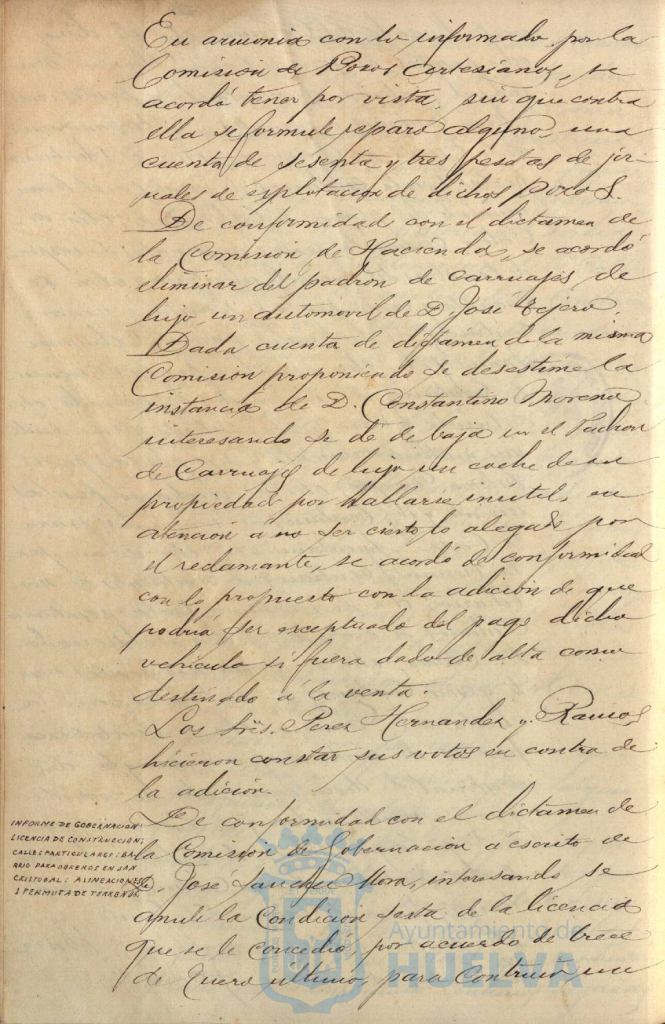 En armonia con lo informado por la
Comision de Pozos Cartesianos, se
acordó tener por vista, sin que contra
ella se formule reparo alguno, una
cuenta de sesenta y tres pesetas de jor-
nales de explotacion de dichos pozos.
De conformidad con el dictamen de
la Comision de Hacienda, se acordó
eliminar del padron de carruajes de
lujo un automovil de D. Jose Tejero.
Dada cuenta de dictamen de la misma
Comision proponiendo se desestime la
instancia de D. Constantino Morena
interesando se dé de baja en el Padron
de Carruajes de lujo un coche de su
propiedad por hallarse inútil, en
atención á no ser cierto lo alegado por
el reclamante, se acordó de conformidad
con lo propuesto con la adición de que
podria ser exceptuado del pago dicho
vehiculo si fuera dado de alta como
destinado á la venta.
Los Srs. Perez Hernandez y Ramos
hicieron constar sus votos en contra de
la adición.
De conformidad con el dictamen de
la Comision de Gobernación a escrito de
D. José Sanchez Mora, interesando se
anule la Condicion sesta de la licencia
que se le concedió, por acuerdo de trece
de Enero ultimo, para Construir un
INFORME DE GOBERNACION:
LICENCIA DE CONSTRUCCION;
CALLES PARTICULARES: BA-
RRIO PARA OBREROS EN SAN
CRISTOBAL: ALINEACIONES
Y PERMUTA DE TERRENOS.
Ayuntamiento de
HUELVA